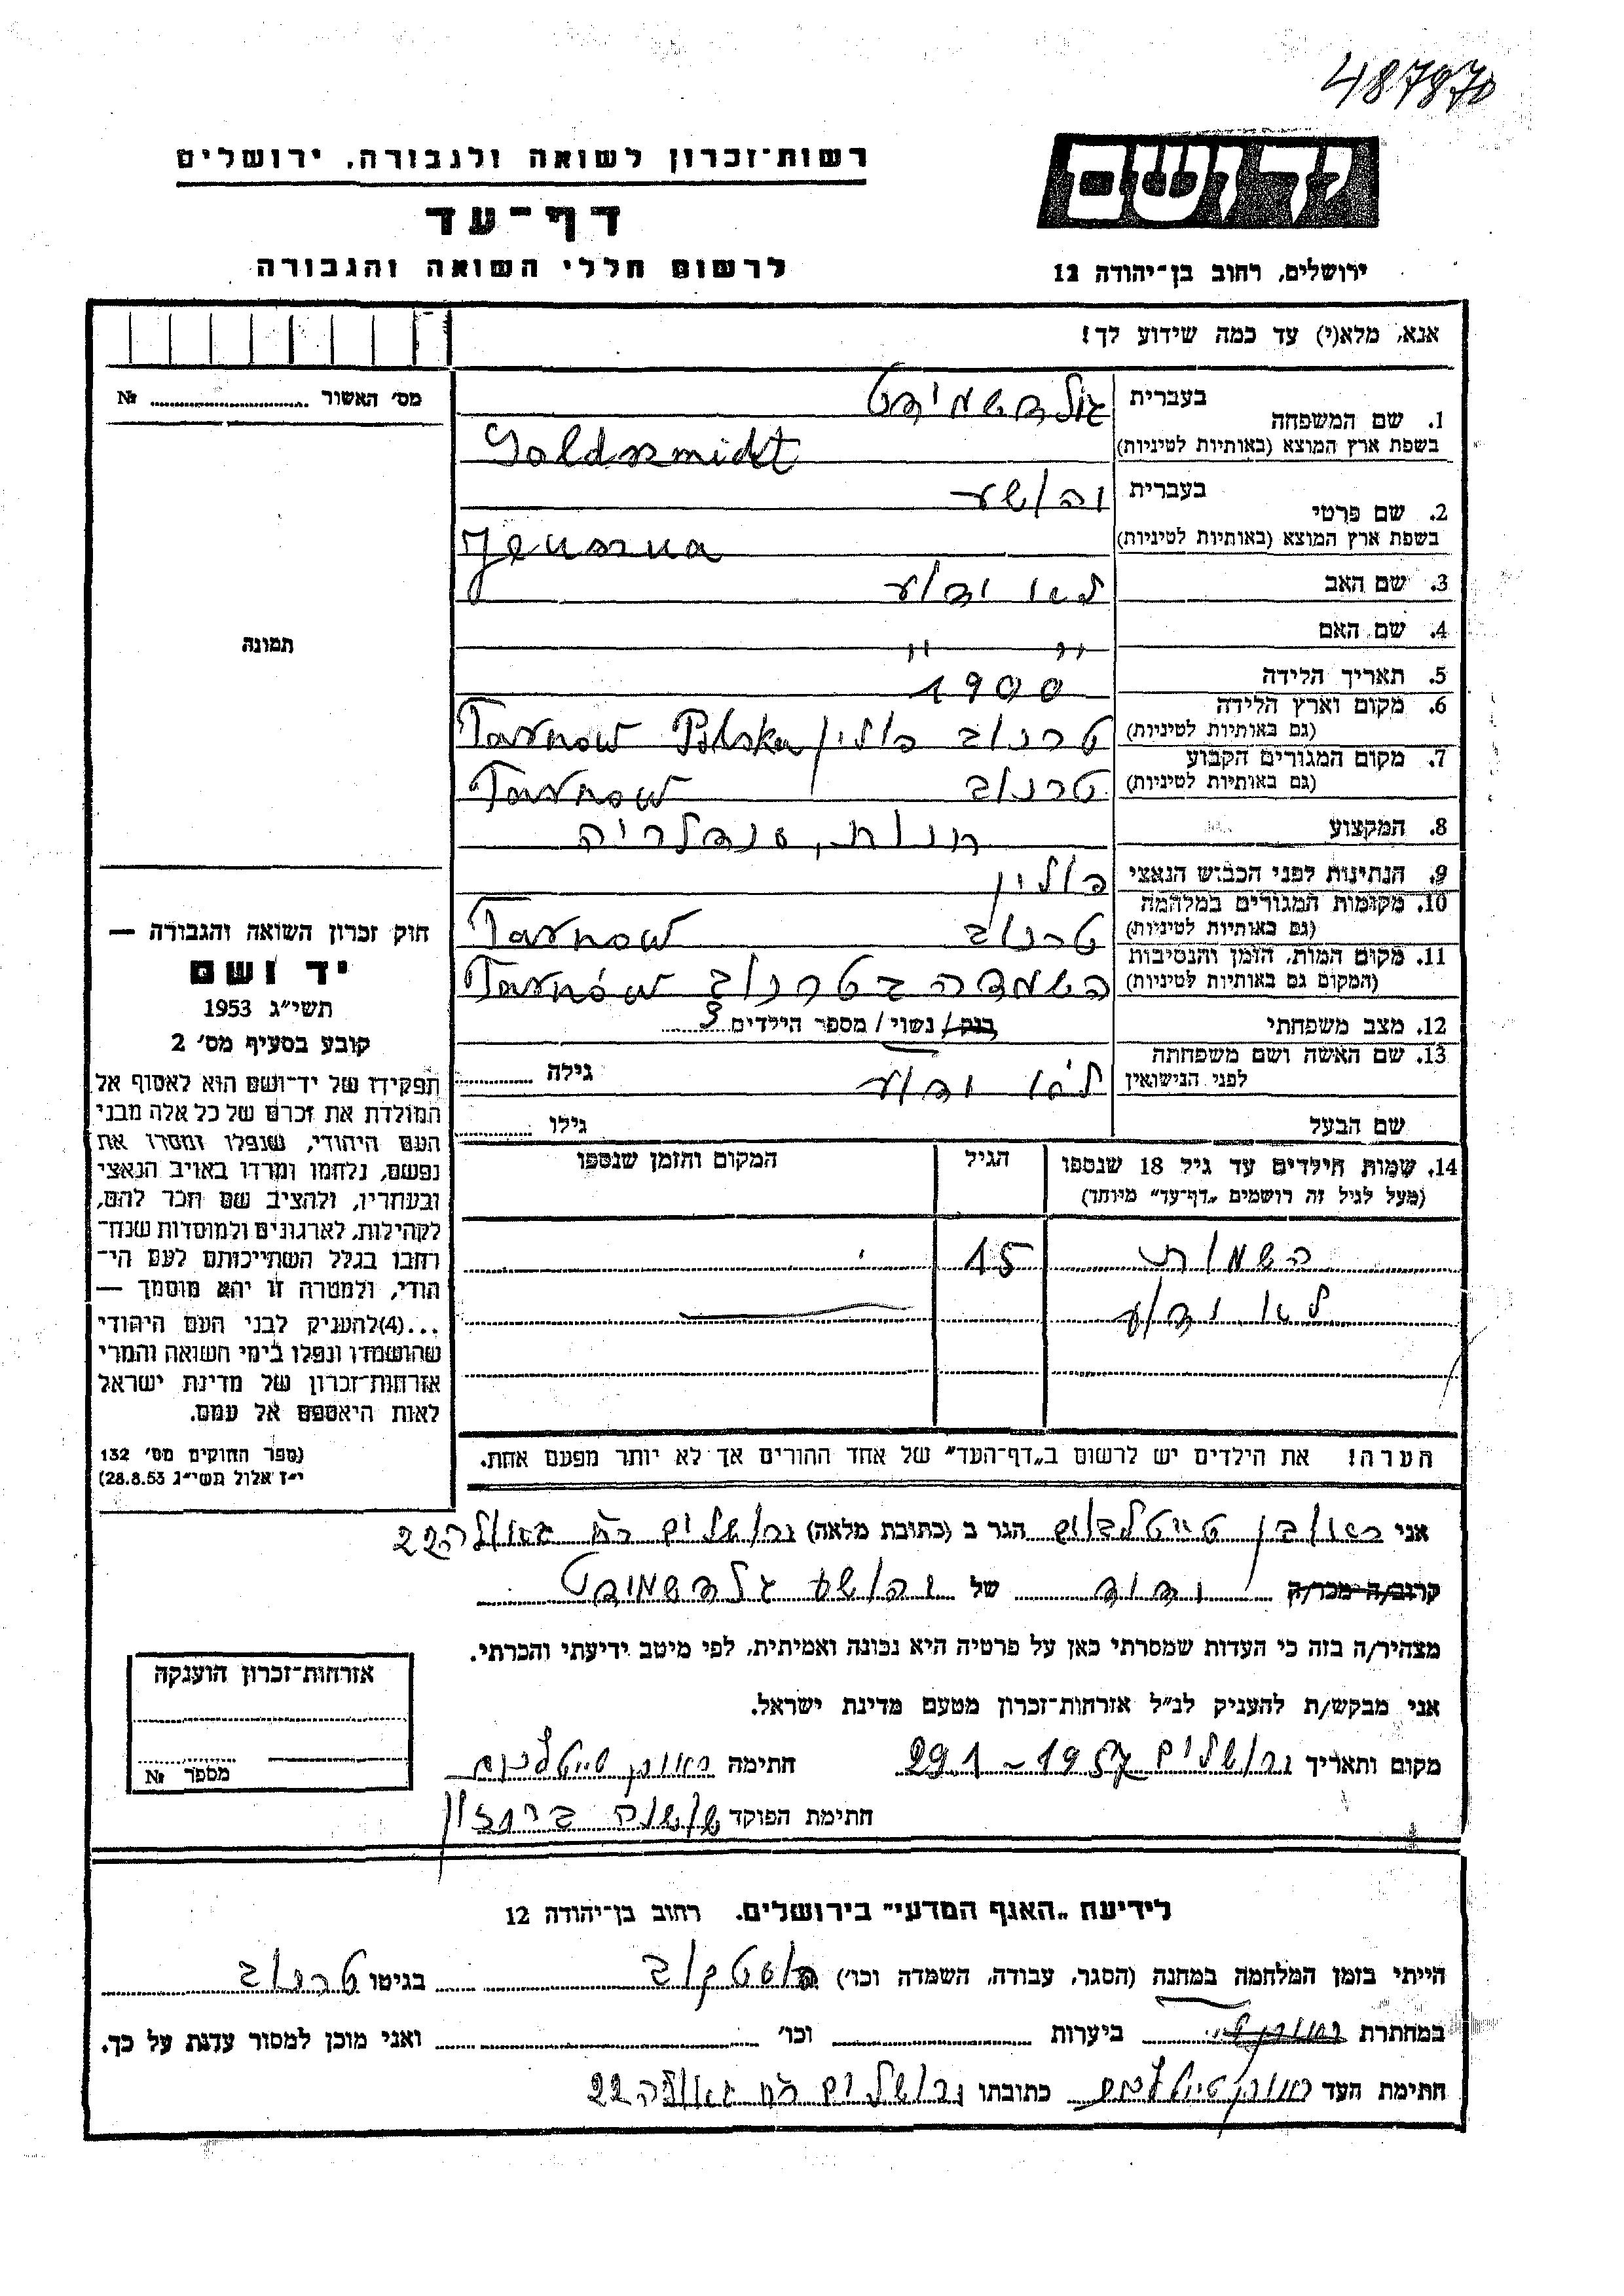 487870
רשות־זכרון לשואה ולגבורה, ירושלים
דף־עד
לרשום חללי השואה והגבורה
יד ושם
ירושלים, רחוב בן־יהודה 12
אנא, מלא(י) עד כמה שידוע לך!
מס' האשור № 
תמונה
חוק זכרון השואה והגבורה —
יד ושם
תשי"ג 1953
קובע בסעיף מס' 2
תפקידו של יד־ושם הוא לאסוף אל
המולדת את זכרם של כל אלה מבני
העם היהודי, שנפלו ומסרו את
נפשם, נלחמו ומרדו באויב הנאצי
ובעוזריו, ולהציב שם וזכר להם,
לקהילות, לארגונים ולמוסדות שנח־
רבו בגלל השתייכותם לעם הי־
הודי, ולמטרה זו יהא מוסמך —
...(4)להעניק לבני העם היהודי
שהושמדו ונפלו בימי השואה והמרי
אזרחות־זכרון של מדינת ישראל
לאות היאספם אל עמם.
(ספר החוקים מס' 132
י"ז אלול תשי"ג 28.8.53)
1. שם המשפחה בעברית גולדשמידט
בשפת ארץ המוצא (באותיות לטיניות) Goldszmidt
2. שם פרטי בעברית יהושע
בשפת ארץ המוצא (באותיות לטיניות) Jeuszua
3. שם האב לא ידוע
4. שם האם " "
5. תאריך הלידה 1900
6. מקום וארץ הלידה (גם באותיות לטיניות) טרנוב פולין Tarnow Polska
7. מקום המגורים הקבוע (גם באותיות לטיניות) טרנוב Tarnow
8. המקצוע חנות, סנדלריה
9. הנתינות לפני הכבוש הנאצי פולין
10. מקומות המגורים במלחמה (גם באותיות לטיניות) טרנוב Tarnow
11. מקום המות, הזמן והנסיבות (המקום גם באותיות לטיניות) השמדה בטרנוב Tarnów
12. מצב משפחתי רווק/ נשוי/ מספר הילדים 3
13. שם האשה ושם משפחתה לפני הנישואין לא ידוע גילה
שם הבעל גילו
14. שמות הילדים עד גיל 18 שנספו הגיל המקום והזמן שנספו
(מעל לגיל זה רושמים "דף־עד" מיוחד)
השמות 15
לא ידוע
הערה! את הילדים יש לרשום ב"דף־העד" של אחד ההורים אך לא יותר מפעם אחת.
אני ראובן טייטלבוים הגר ב (כתובת מלאה) ירושלים רח גאולה 22
קרוב/ה מכר/ה ידיד של יהושע גולדשמידט
מצהיר/ה בזה כי העדות שמסרתי כאן על פרטיה היא נכונה ואמיתית, לפי מיטב ידיעתי והכרתי.
אני מבקש/ת להעניק לנ"ל אזרחות־זכרון מטעם מדינת ישראל.
מקום ותאריך ירושלים 29 1 - 1957 חתימה ראובן טייטלבוים
חתימת הפוקד שושנה
אזרחות־זכרון הוענקה
מספר №
לידיעת "האגף המדעי" בירושלים. רחוב בן־יהודה 12
הייתי בזמן המלחמה במחנה (הסגר, עבודה, השמדה וכו') פוסטקוב בגיטו טרנוב
במחתרת ביערות וכו' ואני מוכן למסור עדות על כך.
חתימת העד ראובן טייטלבוים כתובתו ירושלים רח גאולה 22